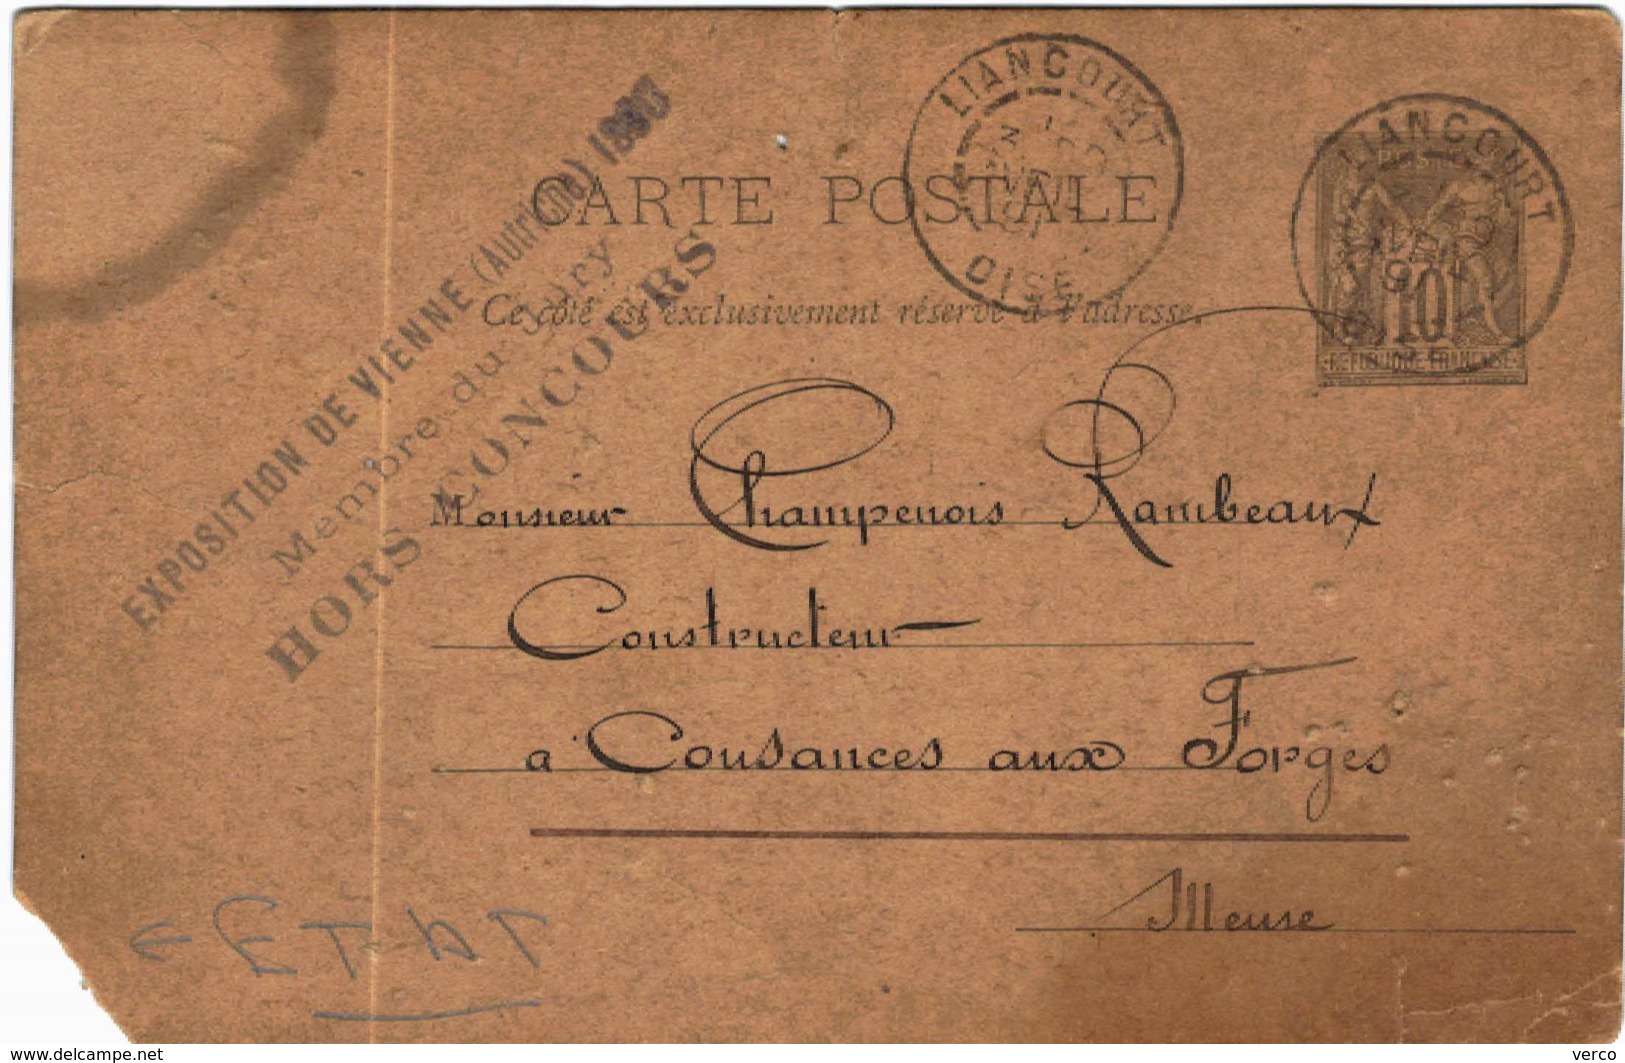 LIANCOURT
OISE
LIANCOURT
10
RÉPUBLIQUE FRANÇAISE
CARTE POSTALE
Ce côté est exclusivement réservé à l'adresse.
EXPOSITION DE VIENNE (Autriche)
Membre du Jury
HORS CONCOURS
Monsieur Champenois Rambeaux
Constructeur
a Cousances aux Forges
Meuse
www.delcampe.net
verco